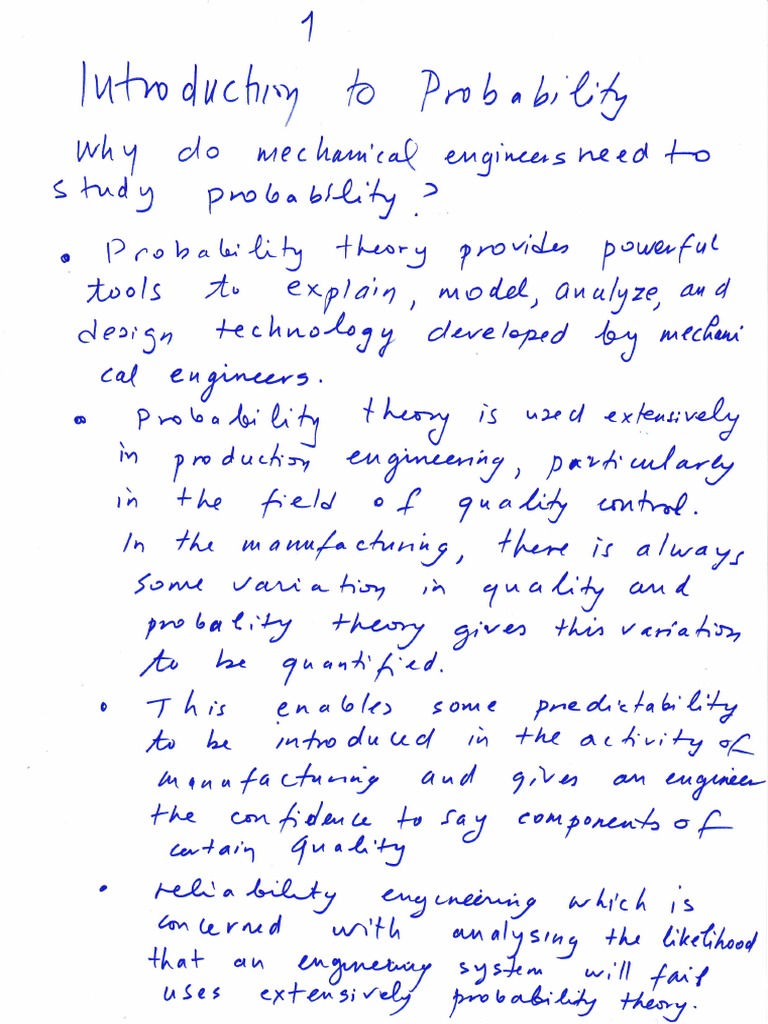 1
Introduction to Probability
Why do mechanical engineers need to
study probability?
• Probability theory provides powerful
tools to explain, model, analyze, and
design technology developed by mechani
cal engineers.
• Probability theory is used extensively
in production engineering, particularly
in the field of quality control.
In the manufacturing, there is always
some variation in quality and
probality theory gives this variation
to be quantified.
• This enables some predictability
to be introduced in the activity of
manufacturing and gives an engineer
the confidence to say components of
certain quality
• reliability engineering which is
concerned with analysing the likelihood
that an engineering system will fail
uses extensively probability theory.